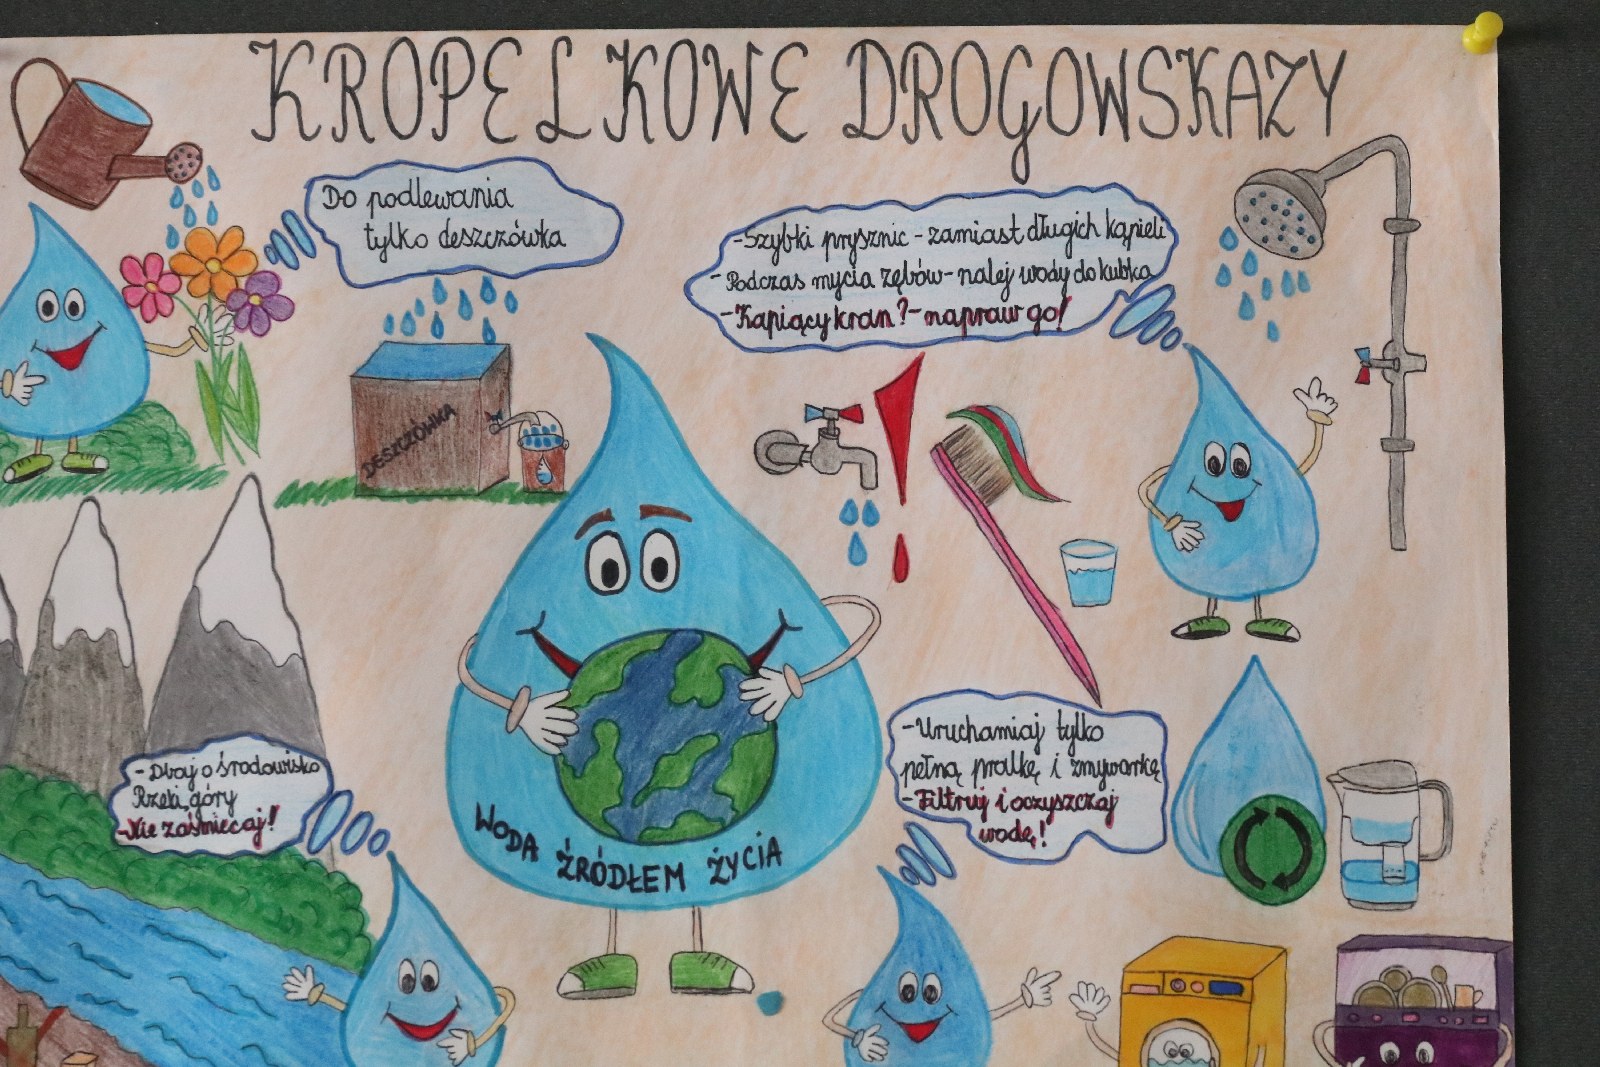 KROPELKOWE DROGOWSKAZY
Do podlewania
tylko deszczówka
-Szybki prysznic - zamiast długich kąpieli
- Podczas mycia zębów - nalej wody do kubka
- Kapiący kran? - napraw go!
DESZCZÓWKA
- Dbaj o środowisko
Rzeki, góry
-Nie zaśmiecaj!
WODA ŹRÓDŁEM ŻYCIA
-Uruchamiaj tylko
pełną pralkę i zmywarkę
- Filtruj i oczyszczaj
wodę!